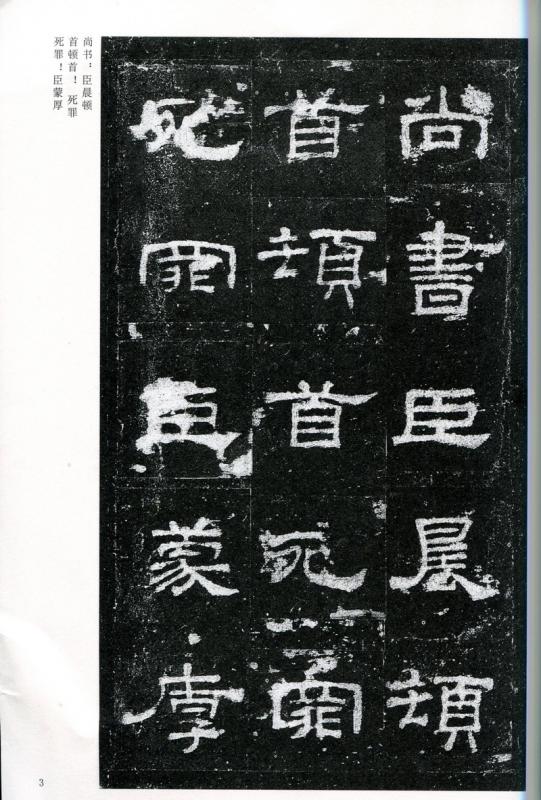 尚書臣晨頓
首頓首死罪
死罪臣蒙厚
尚书：臣晨顿
首顿首！死罪
死罪！臣蒙厚
3